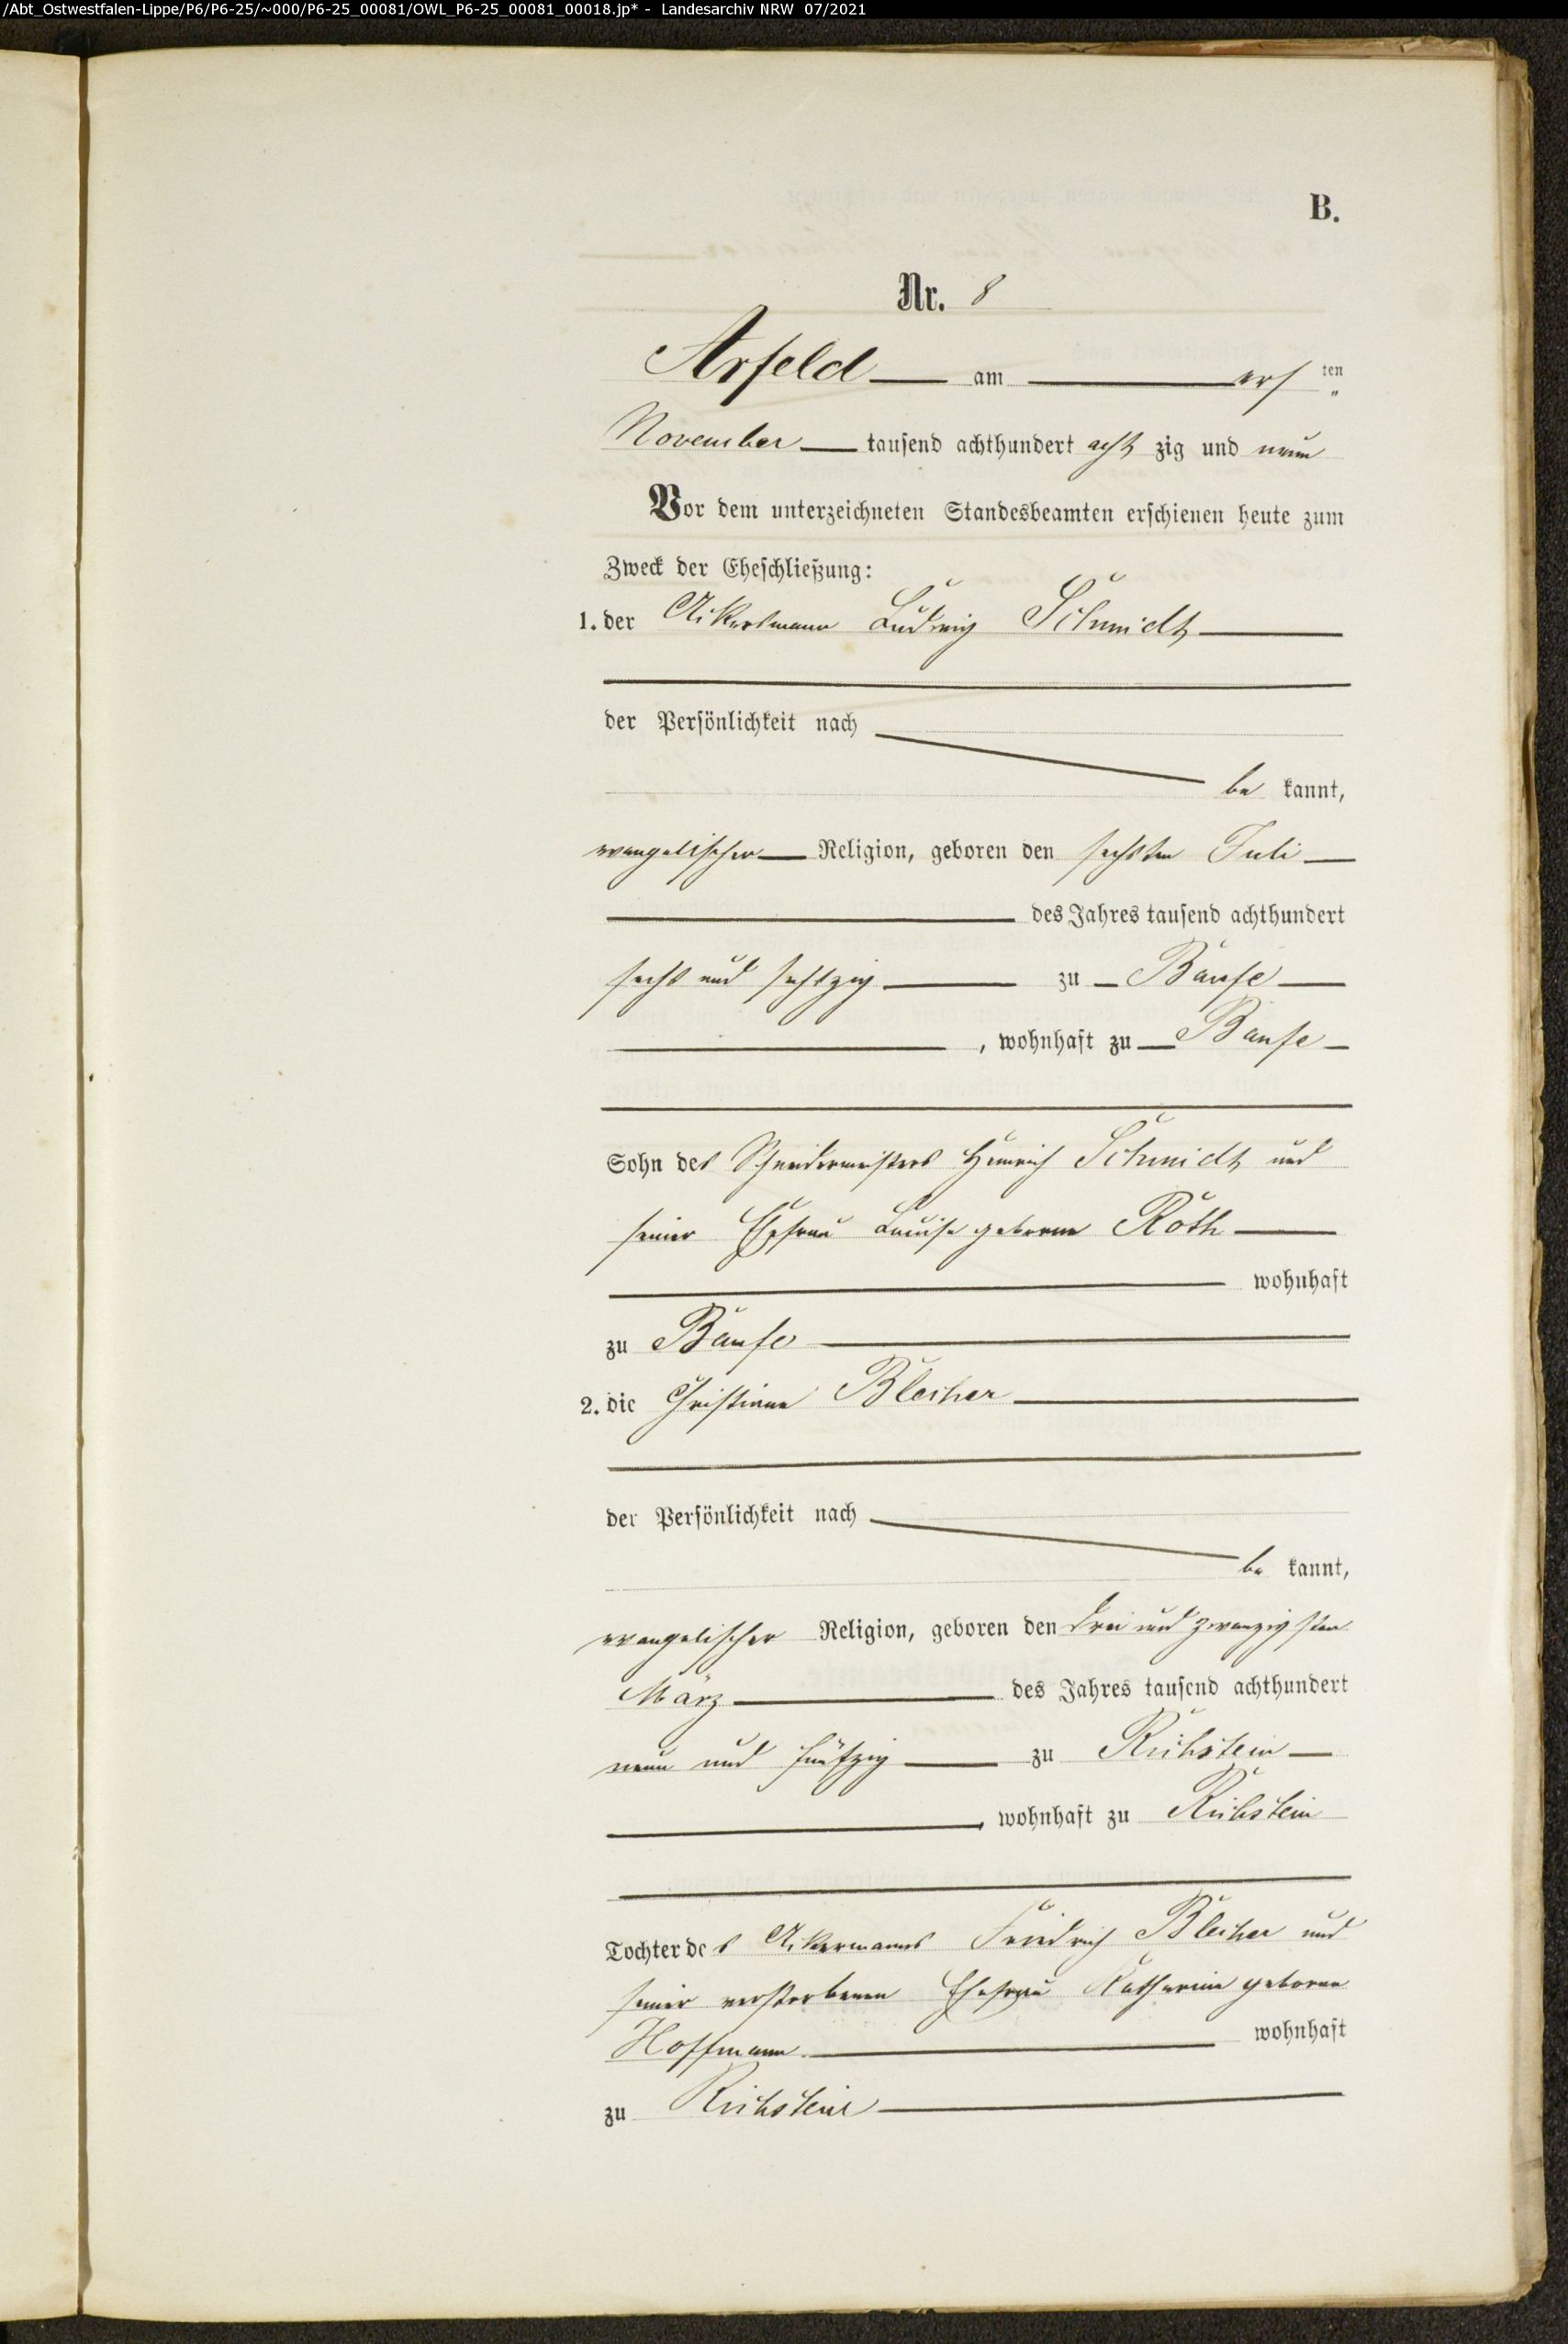 /Abt_Ostwestfalen-Lippe/P6/P6-25/~000/P6-25_00081/OWL_P6-25_00081_00018.jp* - Landesarchiv NRW 07/2021
B.
Nr. 8
Arfeld am ers ten
November tausend achthundert acht zig und neun
Vor dem unterzeichneten Standesbeamten erschienen heute zum
Zweck der Eheschließung:
1. der Ludwig Schmidt
der Persönlichkeit nach
be kannt,
evangelischer Religion, geboren den sechsten Juli
des Jahres tausend achthundert
sechs und sechszig zu Banfe
, wohnhaft zu Banfe
Sohn des Schneidermeisters Heinrich Schmidt und
seiner Ehefrau Louise geborene Roth
wohnhaft
zu Banfe
2. die Christiane Blecher
der Persönlichkeit nach
be kannt,
evangelischer Religion, geboren den drei und zwanzigsten
März des Jahres tausend achthundert
neun und fünfzig zu Richstein
, wohnhaft zu Richstein
Tochter des Ackermanns Friedrich Blecher und
seiner verstorbenen Ehefrau Katharine geborene
Hoffmann wohnhaft
zu Richstein